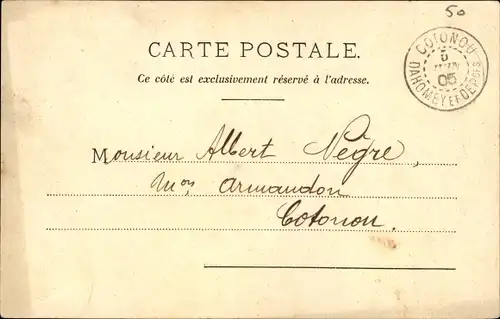 50
CARTE POSTALE.
Ce côté est exclusivement réservé à l'adresse.
COTONOU
5
05
DAHOMEY ET DÉP
Monsieur Albert Nègre,
Mon Armandon
Cotonou.